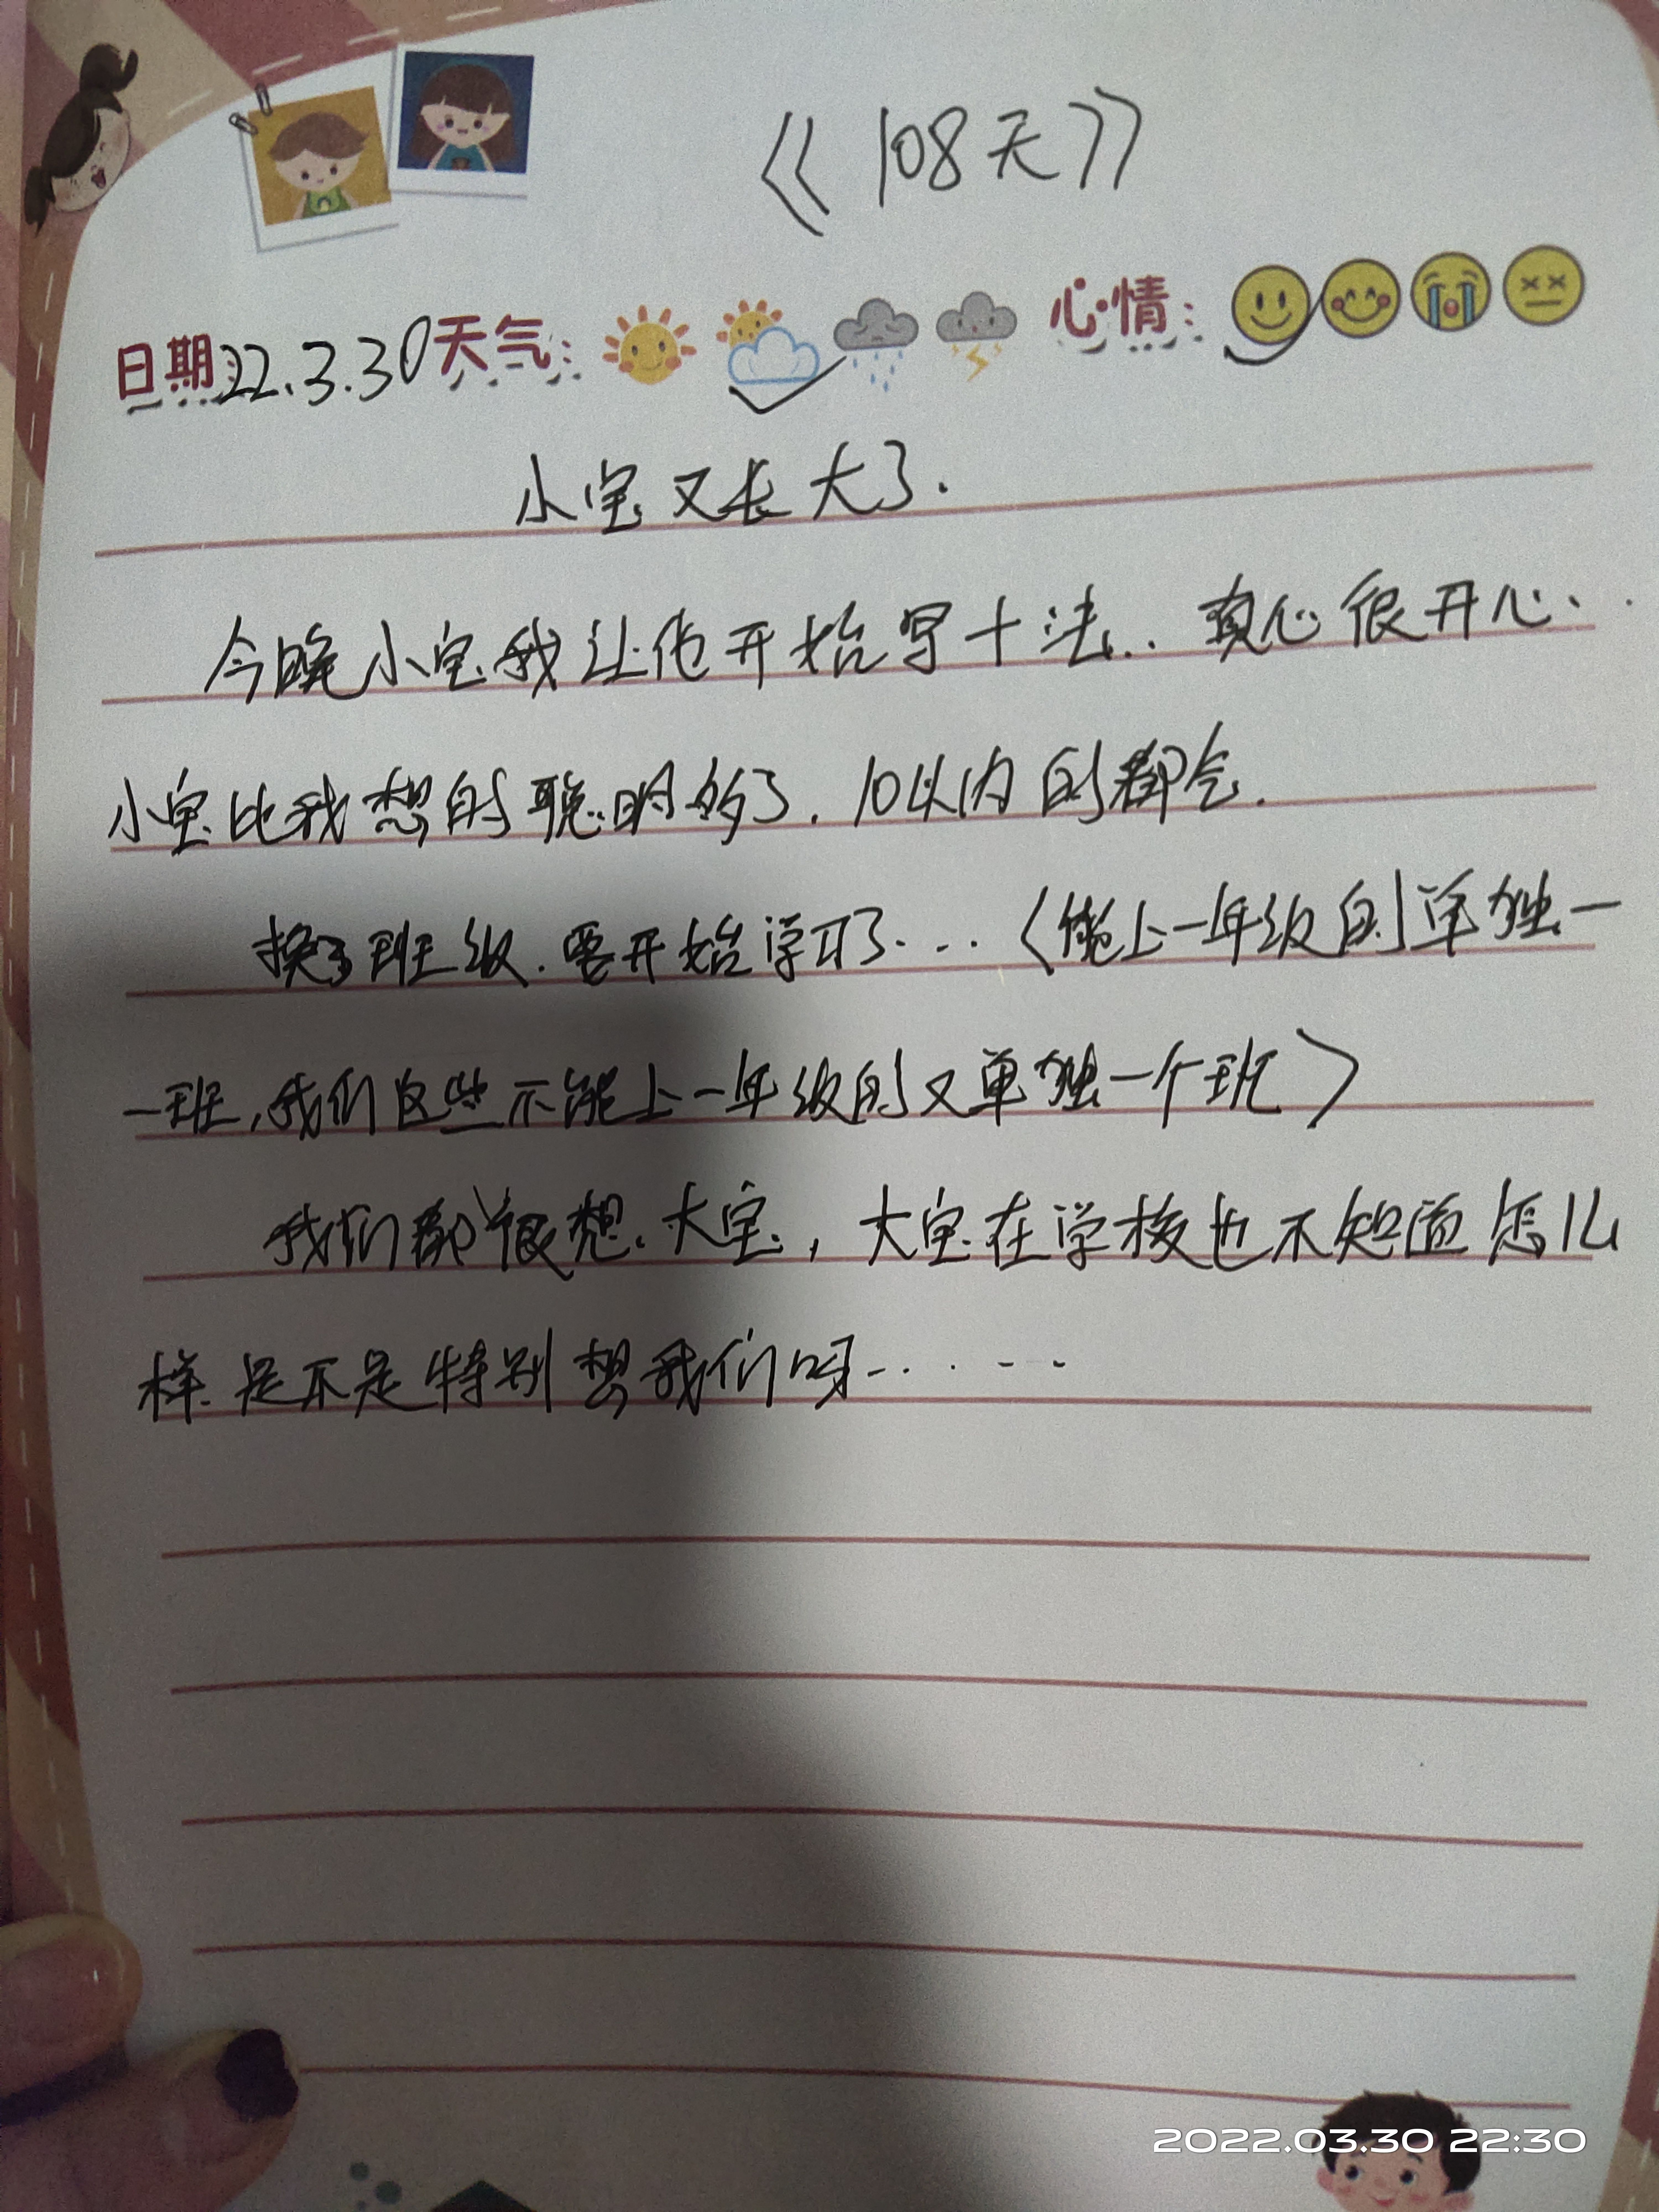 《108天》
日期:22.3.30天气: 心情:
小宝又长大了.
今晚小宝我让他开始写十法.. 真心很开心..
小宝比我想的聪明多了. 10以内的都会.
换了班级.要开始学习了... 〈能上一年级的单独一
一班,我们这些不能上一年级的又单独一个班〉
我们都很想.大宝,大宝在学校也不知道怎么
样.是不是特别想我们呀......
2022.03.30 22:30